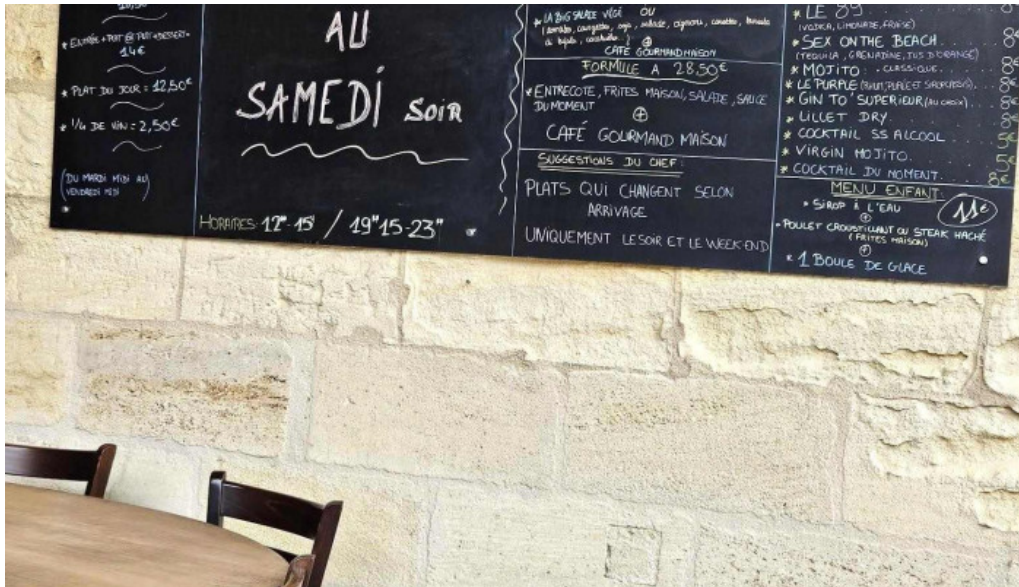 * ENTRÉE + PLAT OU PLAT + DESSERT =
14€
* PLAT DU JOUR = 12,50€
* 1/4 DE VIN = 2,50€
(DU MARDI MIDI AU
VENDREDI MIDI)
AU
SAMEDI SOIR
HORAIRES: 12H-15H / 19H15-23H
* LA BIG SALADE VÉGÉ OU
CAFÉ GOURMAND MAISON
FORMULE A 28.50€
* ENTRECOTE, FRITES MAISON, SALADE, SAUCE
DU MOMENT
+
CAFÉ GOURMAND MAISON
SUGGESTIONS DU CHEF:
PLATS QUI CHANGENT SELON
ARRIVAGE
UNIQUEMENT LE SOIR ET LE WEEK-END
* LE 89
(VODKA, LIMONADE, FRAISE)
* SEX ON THE BEACH........ 8€
(TEQUILA, GRENADINE, JUS D'ORANGE)
* MOJITO: CLASSIQUE........ 8€
* LE PURPLE 8€
* GIN TO' SUPERIEUR (AU CHOIX). 8€
* LILLET DRY........ 8€
* COCKTAIL SS ALCOOL........ 5€
* VIRGIN MOJITO........ 5€
* COCKTAIL DU MOMENT........ 8€
MENU ENFANT: 11€
* SIROP À L'EAU
+
* POULET CROUSTILLANT OU STEAK HACHÉ
(FRITES MAISON)
+
* 1 BOULE DE GLACE